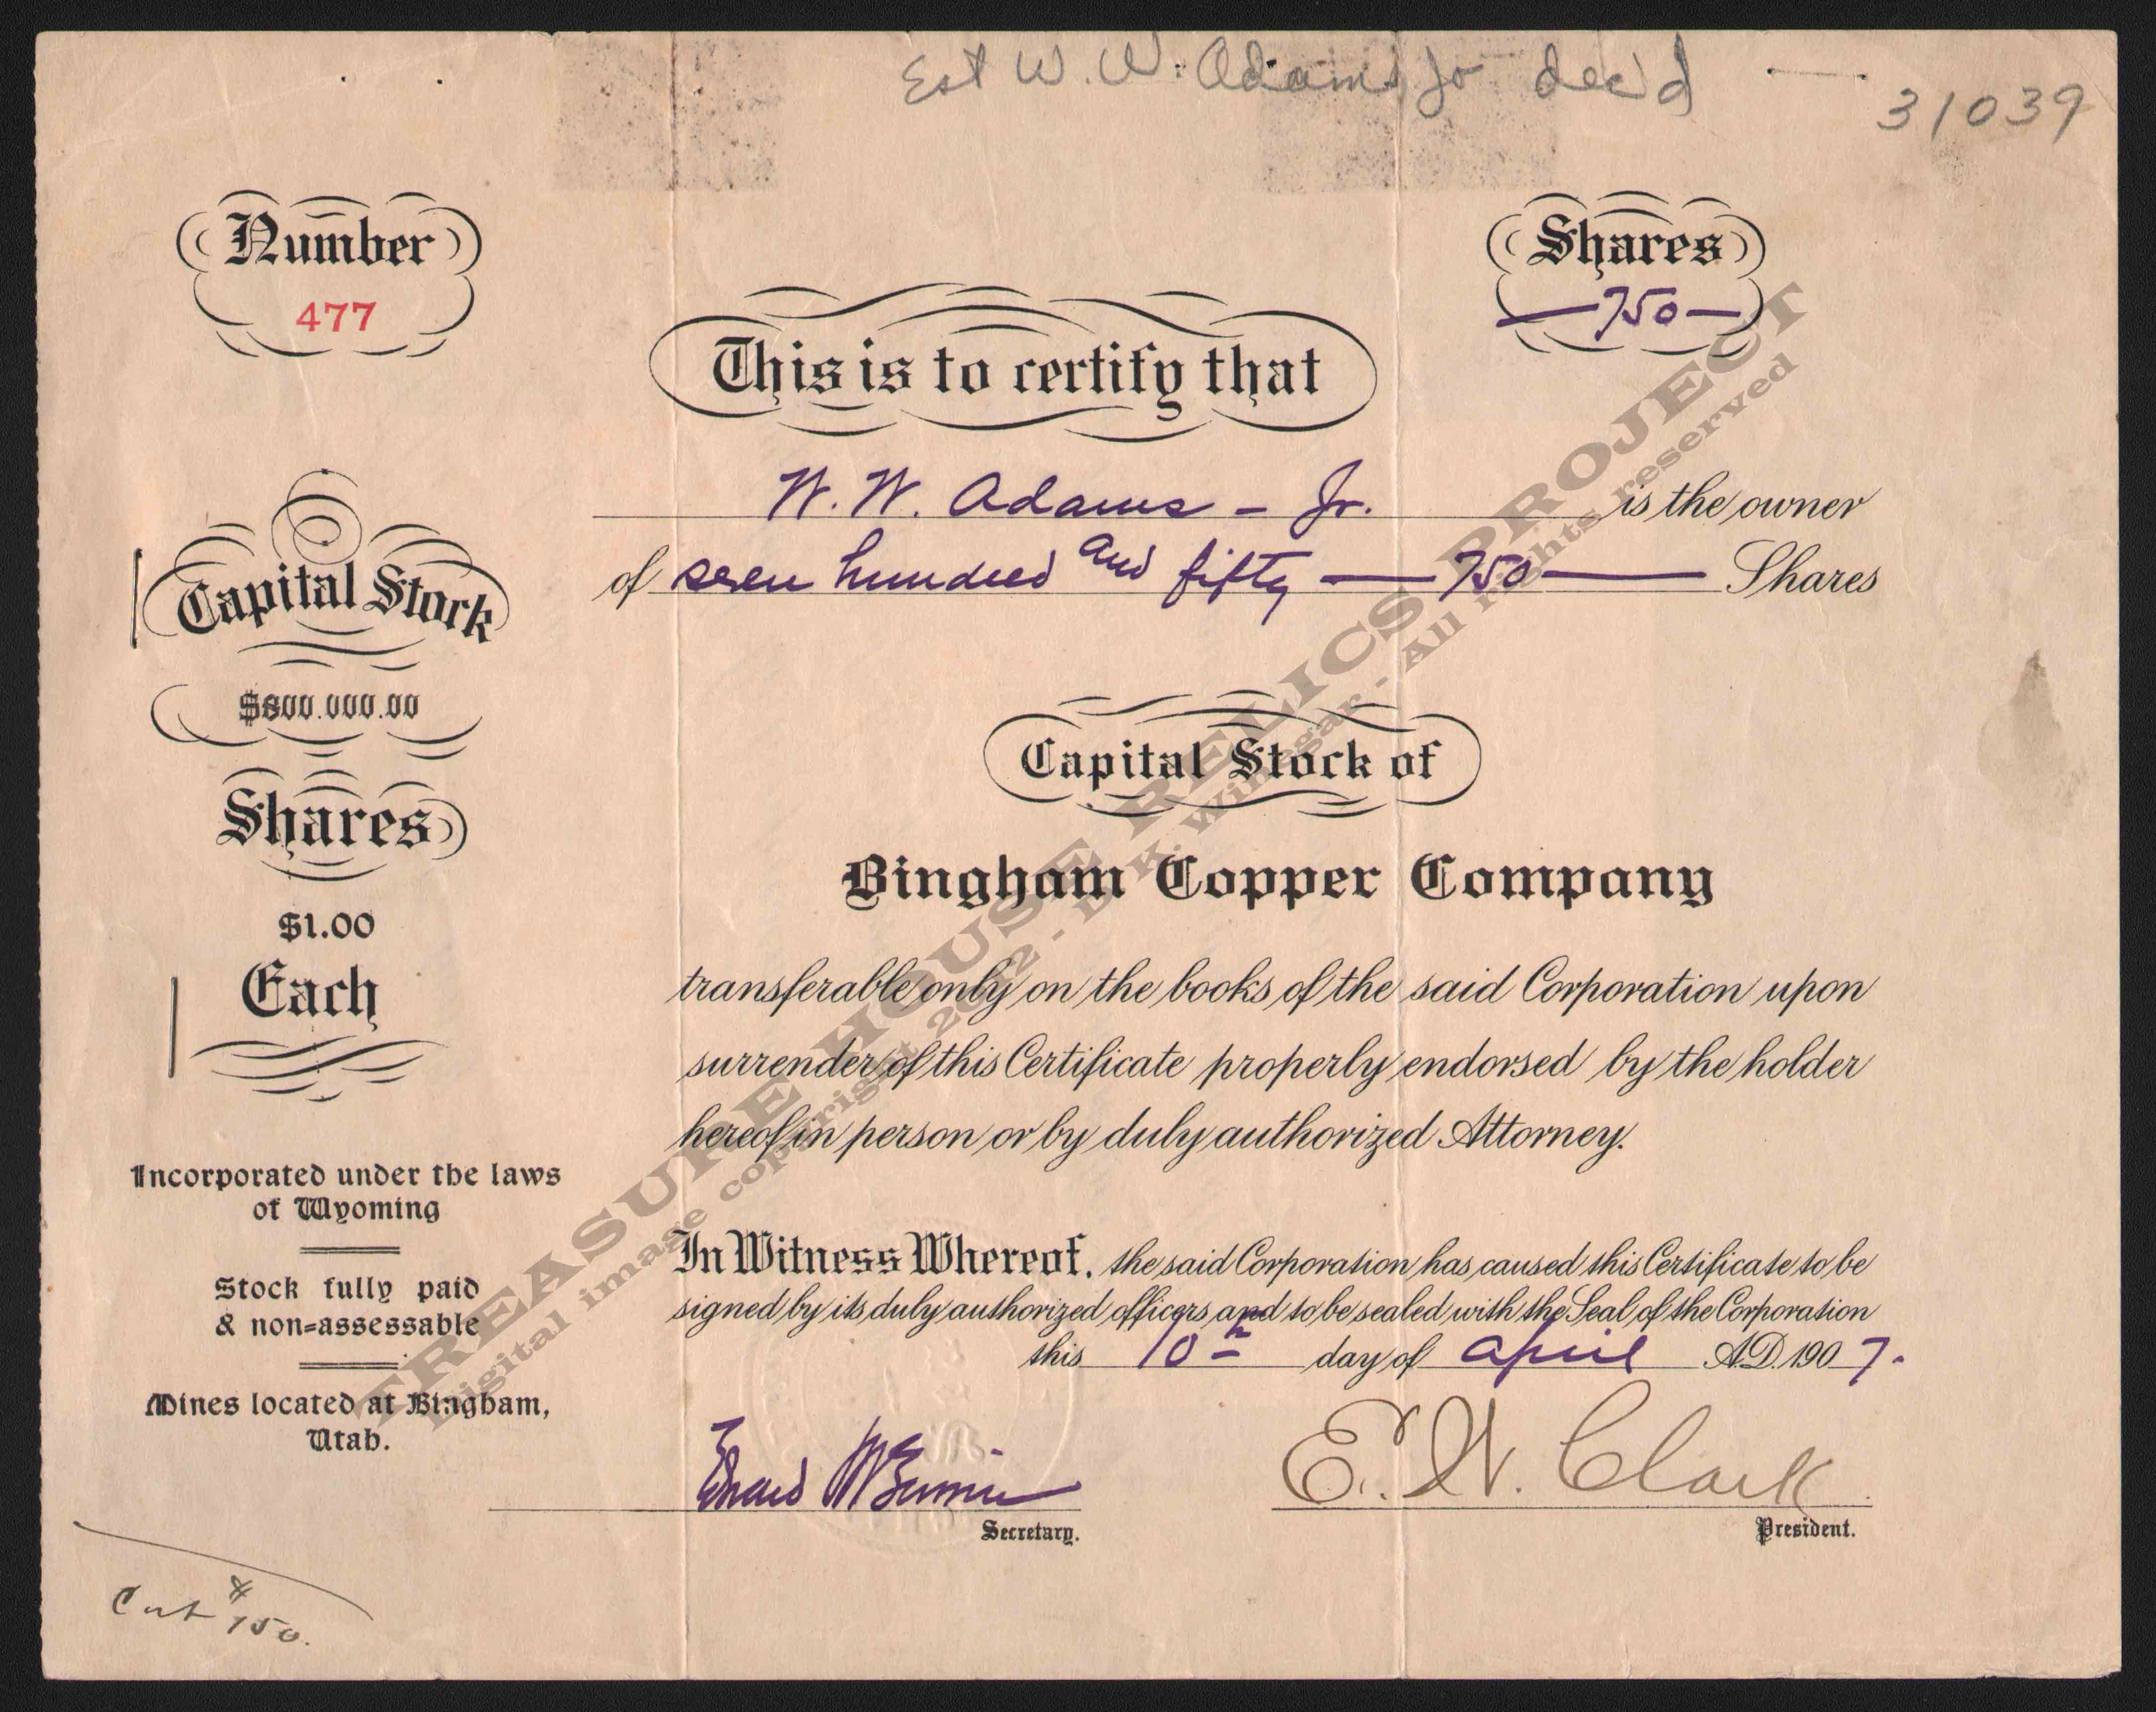 Est W. W. Adams Jr dec'd
31039
Number
477
Shares
750
This is to certify that
W. W. Adams - Jr. is the owner
of seven hundred and fifty — 750 — Shares
Capital Stock
$800.000.00
Shares
$1.00
Each
Capital Stock of
Bingham Copper Company
transferable only on the books of the said Corporation upon
surrender of this Certificate properly endorsed by the holder
hereof in person or by duly authorized Attorney.
Incorporated under the laws
of Wyoming
Stock fully paid
& non=assessable
Mines located at Bingham,
Utah.
In Witness Whereof, the said Corporation has caused this Certificate to be
signed by its duly authorized officers and to be sealed with the Seal of the Corporation
this 10th day of April A.D. 1907.
E. W. Clark
Secretary.
President.
TREASURE HOUSE RELICS PROJECT
Digital image copyright 2012 - D. K. Winegar - All rights reserved